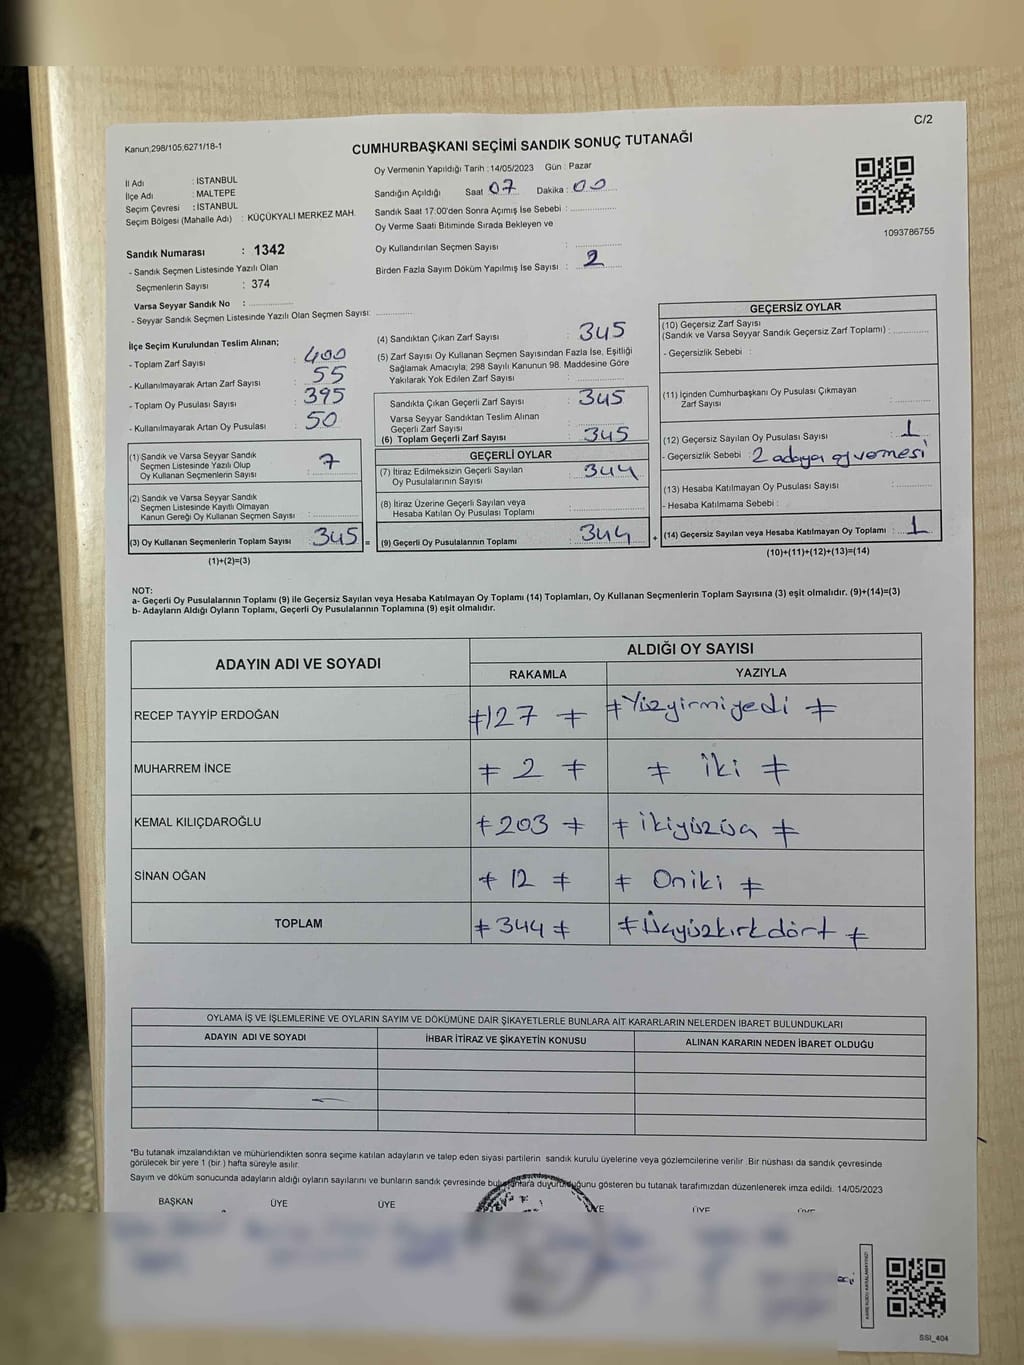 C/2
Kanun,298/105,6271/18-1
CUMHURBAŞKANI SEÇİMİ SANDIK SONUÇ TUTANAĞI
İl Adı : İSTANBUL
İlçe Adı : MALTEPE
Seçim Çevresi : İSTANBUL
Seçim Bölgesi (Mahalle Adı) : KÜÇÜKYALI MERKEZ MAH.
Sandık Numarası : 1342
- Sandık Seçmen Listesinde Yazılı Olan
Seçmenlerin Sayısı : 374
Varsa Seyyar Sandık No : ................
- Seyyar Sandık Seçmen Listesinde Yazılı Olan Seçmen Sayısı: ............
Oy Vermenin Yapıldığı Tarih : 14/05/2023 Gün : Pazar
Sandığın Açıldığı Saat 07 Dakika : 00
Sandık Saat 17:00'den Sonra Açımış İse Sebebi : ................
Oy Verme Saati Bitiminde Sırada Bekleyen ve
Oy Kullandırılan Seçmen Sayısı : ................
Birden Fazla Sayım Döküm Yapılmış İse Sayısı : 2
1093786755
İlçe Seçim Kurulundan Teslim Alınan;
- Toplam Zarf Sayısı : 400
- Kullanılmayarak Artan Zarf Sayısı : 55
- Toplam Oy Pusulası Sayısı : 395
- Kullanılmayarak Artan Oy Pusulası : 50
(1) Sandık ve Varsa Seyyar Sandık
Seçmen Listesinde Yazılı Olup
Oy Kullanan Seçmenlerin Sayısı : 7
(2) Sandık ve Varsa Seyyar Sandık
Seçmen Listesinde Kayıtlı Olmayan
Kanun Gereği Oy Kullanan Seçmen Sayısı : ............
(3) Oy Kullanan Seçmenlerin Toplam Sayısı 345 =
(1)+(2)=(3)
(4) Sandıktan Çıkan Zarf Sayısı : 345
(5) Zarf Sayısı Oy Kullanan Seçmen Sayısından Fazla İse, Eşitliği
Sağlamak Amacıyla; 298 Sayılı Kanunun 98. Maddesine Göre
Yakılarak Yok Edilen Zarf Sayısı : ............
Sandıkta Çıkan Geçerli Zarf Sayısı : 345
Varsa Seyyar Sandıktan Teslim Alınan
Geçerli Zarf Sayısı
(6) Toplam Geçerli Zarf Sayısı : 345
GEÇERLİ OYLAR
(7) İtiraz Edilmeksizin Geçerli Sayılan
Oy Pusulalarının Toplamı : 344
(8) İtiraz Üzerine Geçerli Sayılan veya
Hesaba Katılan Oy Pusulası Toplamı : ............
(9) Geçerli Oy Pusulalarının Toplamı : 344 +
GEÇERSİZ OYLAR
(10) Geçersiz Zarf Sayısı
(Sandık ve Varsa Seyyar Sandık Geçersiz Zarf Toplamı) : ............
- Geçersizlik Sebebi :
(11) İçinden Cumhurbaşkanı Oy Pusulası Çıkmayan
Zarf Sayısı : ............
(12) Geçersiz Sayılan Oy Pusulası Sayısı : 1
- Geçersizlik Sebebi : 2 adaya oy vermesi
(13) Hesaba Katılmayan Oy Pusulası Sayısı : ............
- Hesaba Katılmama Sebebi :
(14) Geçersiz Sayılan veya Hesaba Katılmayan Oy Toplamı : 1
(10)+(11)+(12)+(13)=(14)
NOT:
a- Geçerli Oy Pusulalarının Toplamı (9) ile Geçersiz Sayılan veya Hesaba Katılmayan Oy Toplamı (14) Toplamları, Oy Kullanan Seçmenlerin Toplam Sayısına (3) eşit olmalıdır. (9)+(14)=(3)
b- Adayların Aldığı Oyların Toplamı, Geçerli Oy Pusulalarının Toplamına (9) eşit olmalıdır.
ADAYIN ADI VE SOYADI ALDIĞI OY SAYISI
RAKAMLA YAZIYLA
RECEP TAYYİP ERDOĞAN ≠127 ≠ ≠Yüzyirmiyedi ≠
MUHARREM İNCE ≠ 2 ≠ ≠ iki ≠
KEMAL KILIÇDAROĞLU ≠203 ≠ ≠ ikiyüzüç ≠
SİNAN OĞAN ≠ 12 ≠ ≠ Oniki ≠
TOPLAM ≠344≠ ≠Üçyüzkırkdört ≠
OYLAMA İŞ VE İŞLEMLERİNE VE OYLARIN SAYIM VE DÖKÜMÜNE DAİR ŞİKAYETLERLE BUNLARA AİT KARARLARIN NELERDEN İBARET BULUNDUKLARI
ADAYIN ADI VE SOYADI İHBAR İTİRAZ VE ŞİKAYETİN KONUSU ALINAN KARARIN NEDEN İBARET OLDUĞU
*Bu tutanak imzalandıktan ve mühürlendikten sonra seçime katılan adayların ve talep eden siyası partilerin sandık kurulu üyelerine veya gözlemcilerine verilir. Bir nüshası da sandık çevresinde
görülecek bir yere 1 (bir) hafta süreyle asılır.
Sayım ve döküm sonucunda adayların aldığı oyların sayılarını ve bunların sandık çevresinde duyurulduğunu gösteren bu tutanak tarafımızdan düzenlenerek imza edildi. 14/05/2023
BAŞKAN ÜYE ÜYE ÜYE ÜYE ÜYE
SSI_404